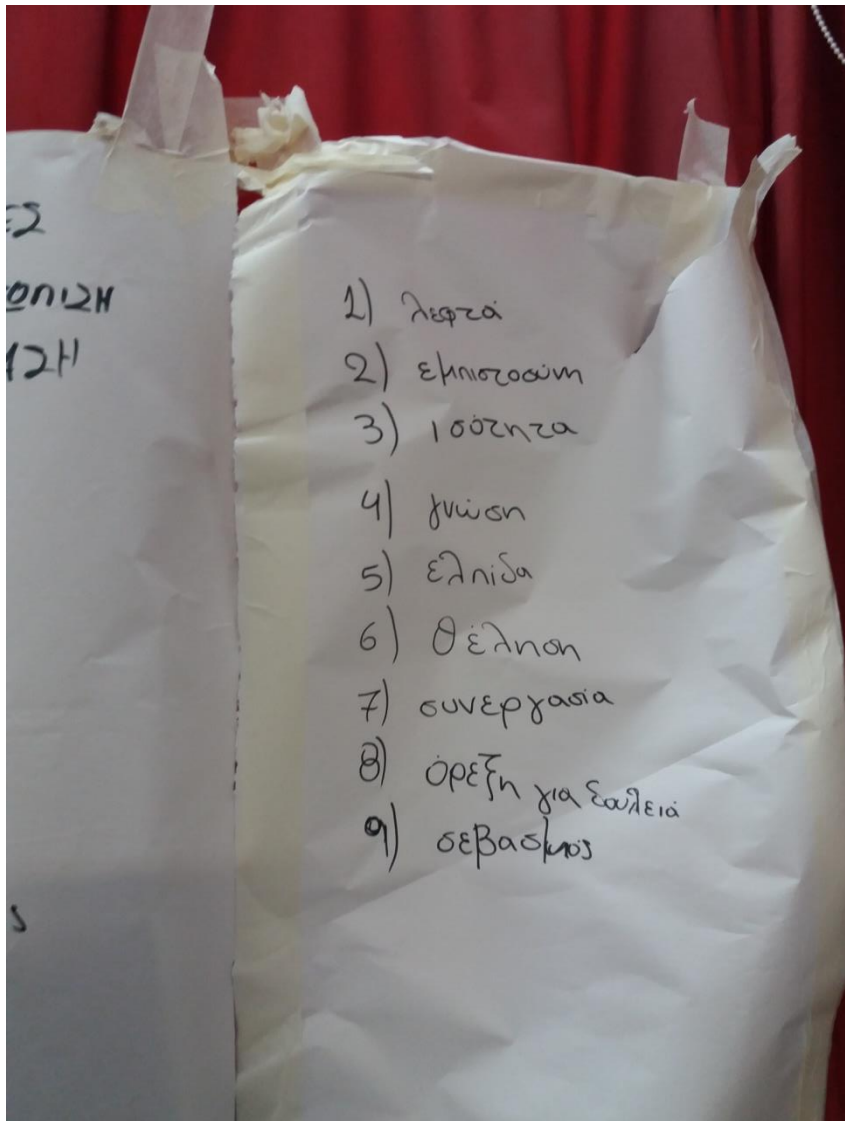 1) λεφτά
2) εμπιστοσύνη
3) ισότητα
4) γνώση
5) ελπίδα
6) θέληση
7) συνεργασία
8) όρεξη για δουλειά
9) σεβασμός